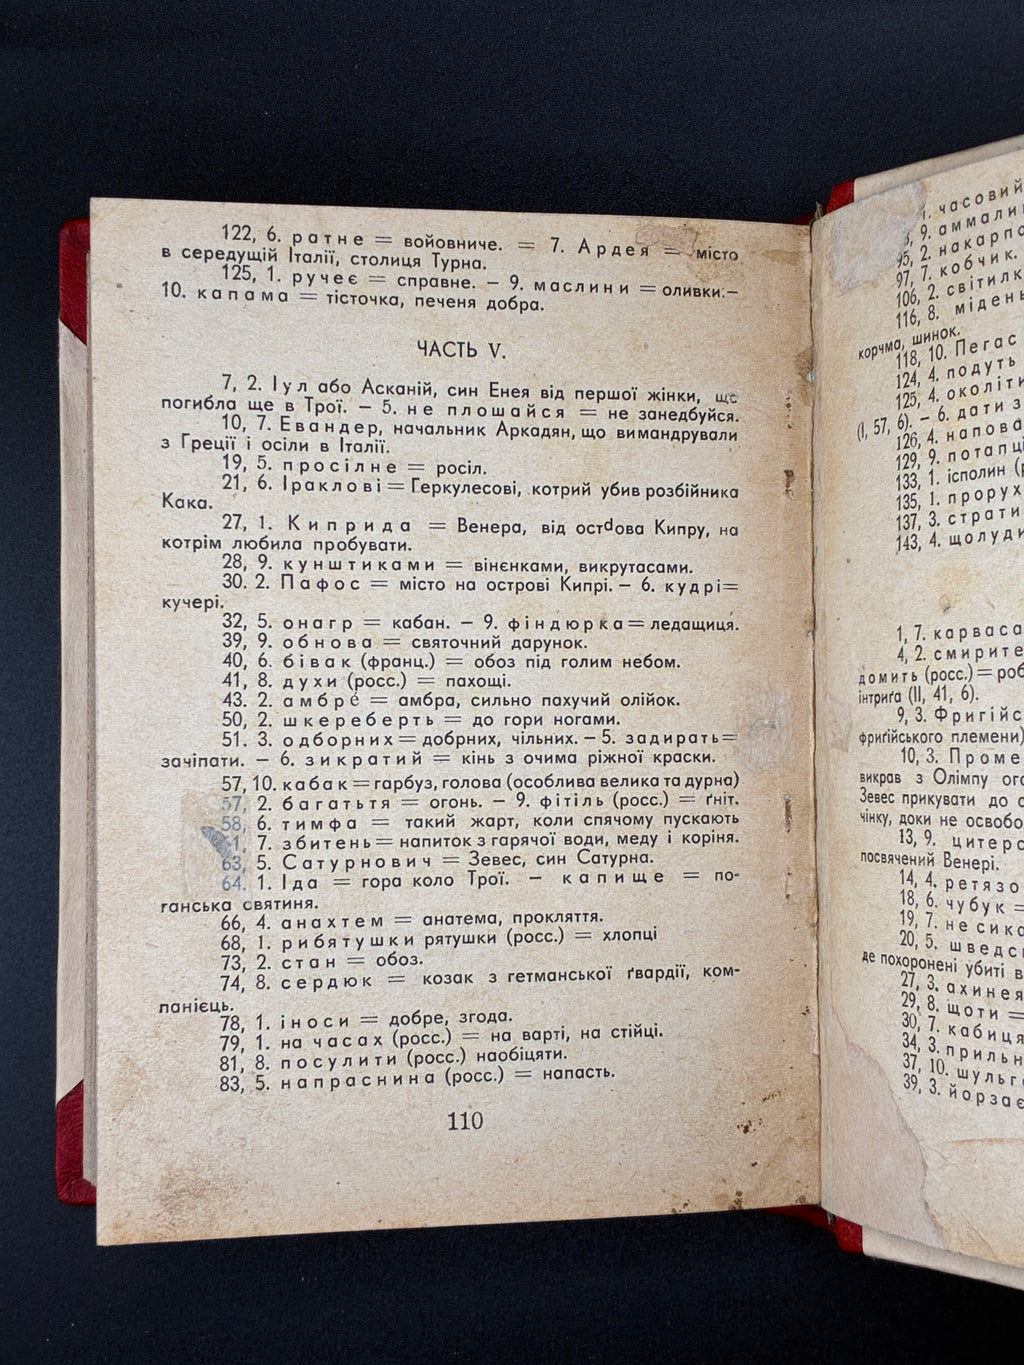 122, 6. ратне = войовниче. = 7. Ардея = місто
в середущій Італії, столиця Турна.
125, 1. ручеє = справне. – 9. маслини = оливки.–
10. капама = тісточка, печеня добра.
ЧАСТЬ V.
7, 2. Іул або Асканій, син Енея від першої жінки, що
погибла ще в Трої. – 5. не плошайся = не занедбуйся.
10, 7. Евандер, начальник Аркадян, що вимандрували
з Греції і осіли в Італії.
19, 5. просілне = росіл.
21, 6. Іраклові = Геркулесові, котрий убив розбійника
Кака.
27, 1. Киприда = Венера, від остdова Кипру, на
котрім любила пробувати.
28, 9. кунштиками = вінєнками, викрутасами.
30. 2. Пафос = місто на острові Кипрі. – 6. кудрі=
кучері.
32, 5. онагр = кабан. – 9. фіндюрка = ледащиця.
39, 9. обнова = святочний дарунок.
40, 6. бівак (франц.) = обоз під голим небом.
41, 8. духи (росс.) = пахощі.
43. 2. амбрé = амбра, сильно пахучий олійок.
50, 2. шкереберть = до гори ногами.
51. 3. одборних = добрних, чільних. – 5. задирать=
зачіпати. – 6. зикратий = кінь з очима ріжної краски.
57, 10. кабак = гарбуз, голова (особлива велика та дурна)
57, 2. багатьтя = огонь. – 9. фітіль (росс.) = ґніт.
58, 6. тимфа = такий жарт, коли спячому пускають
61, 7. збитень = напиток з гарячої води, меду і коріня.
63, 5. Сатурнович = Зевес, син Сатурна.
64. 1. Іда = гора коло Трої. – капище = по-
ганська святиня.
66, 4. анахтем = анатема, прокляття.
68, 1. рибятушки рятушки (росс.) = хлопці
73, 2. стан = обоз.
74, 8. сердюк = козак з гетманської ґвардії, ком-
панієць.
78, 1. іноси = добре, згода.
79, 1. на часах (росс.) = на варті, на стійці.
81, 8. посулити (росс.) наобіцяти.
83, 5. напраснина (росс.) = напасть.
110
1. часовий
9. аммали
95, 2. накарпа
97, 7. кобчик.
106, 2. світилк
116, 8. мідень
корчма, шинок.
118, 10. Пегас
124, 4. подуть
125, 4. околіти
(І, 57, 6). – 6. дати з
126, 4. напова
129, 9. потапці
133, 1. ісполин (р
135, 1. прорух
137, 3. страти
143, 4. щолуди
1, 7. карваса
4, 2. смирите
домить (росс.) = роб
інтриґа (ІІ, 41, 6).
9, 3. Фригійс
фриґійського племени)
10, 3. Проме
викрав з Олімпу ого
Зевес прикувати до с
чінку, доки не освобо
13, 9. цитерс
посвячений Венері.
14, 4. ретязо
18, 6. чубук =
19, 7. не сика
20, 5. шведс
де похоронені убиті в
27, 3. ахинея
29, 8. щоти =
30, 7. кабиця
34, 3. прильн
37, 10. шульг
39, 3. йорзає